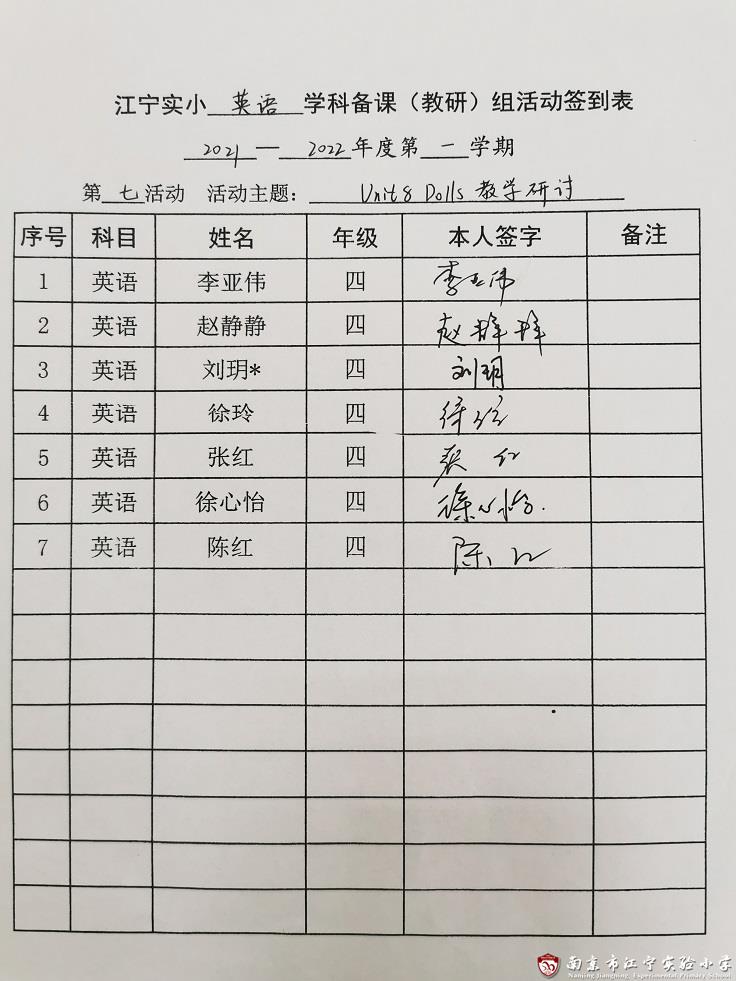 江宁实小 英语 学科备课（教研）组活动签到表
2021 — 2022 年度第 一 学期
第 七 活动 活动主题： Unit 8 Dolls 教学研讨
序号 科目 姓名 年级 本人签字 备注
1 英语 李亚伟 四 李亚伟
2 英语 赵静静 四 赵静静
3 英语 刘玥* 四 刘玥
4 英语 徐玲 四 徐玲
5 英语 张红 四 张红
6 英语 徐心怡 四 徐心怡.
7 英语 陈红 四 陈红
南京市江宁实验小学
Nanjing Jiangning Experimental Primary School